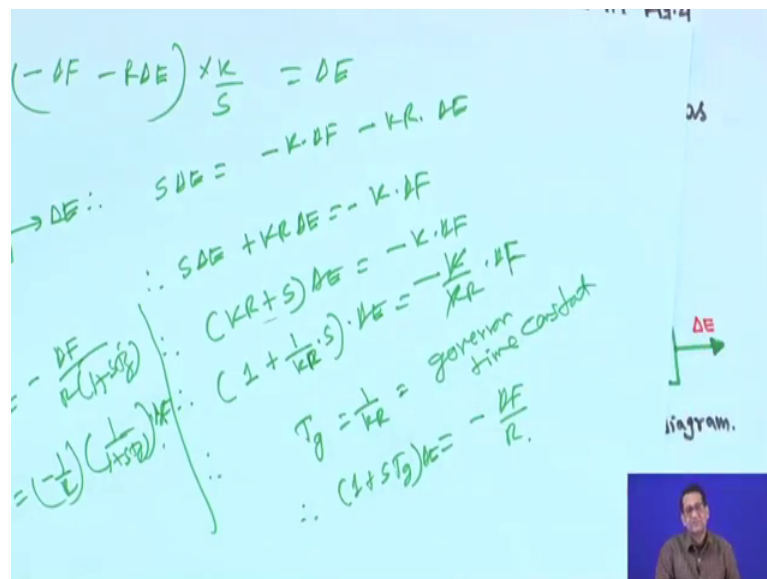 (-ΔF - RΔE) × K/S = ΔE
→ ΔE ∴ SΔE = -K·ΔF - KR·ΔE
∴ SΔE + KRΔE = -K·ΔF
∴ (KR+S)ΔE = -K·ΔF
∴ (1 + 1/KR·S)·ΔE = -K/KR·ΔF
∴ Tg = 1/KR = governor time constat
∴ (1+STg)ΔE = -ΔF/R.
= -ΔF/R(1+STg)
= (-1/R)(1/1+STg)·ΔF
as
ΔE
diagram.